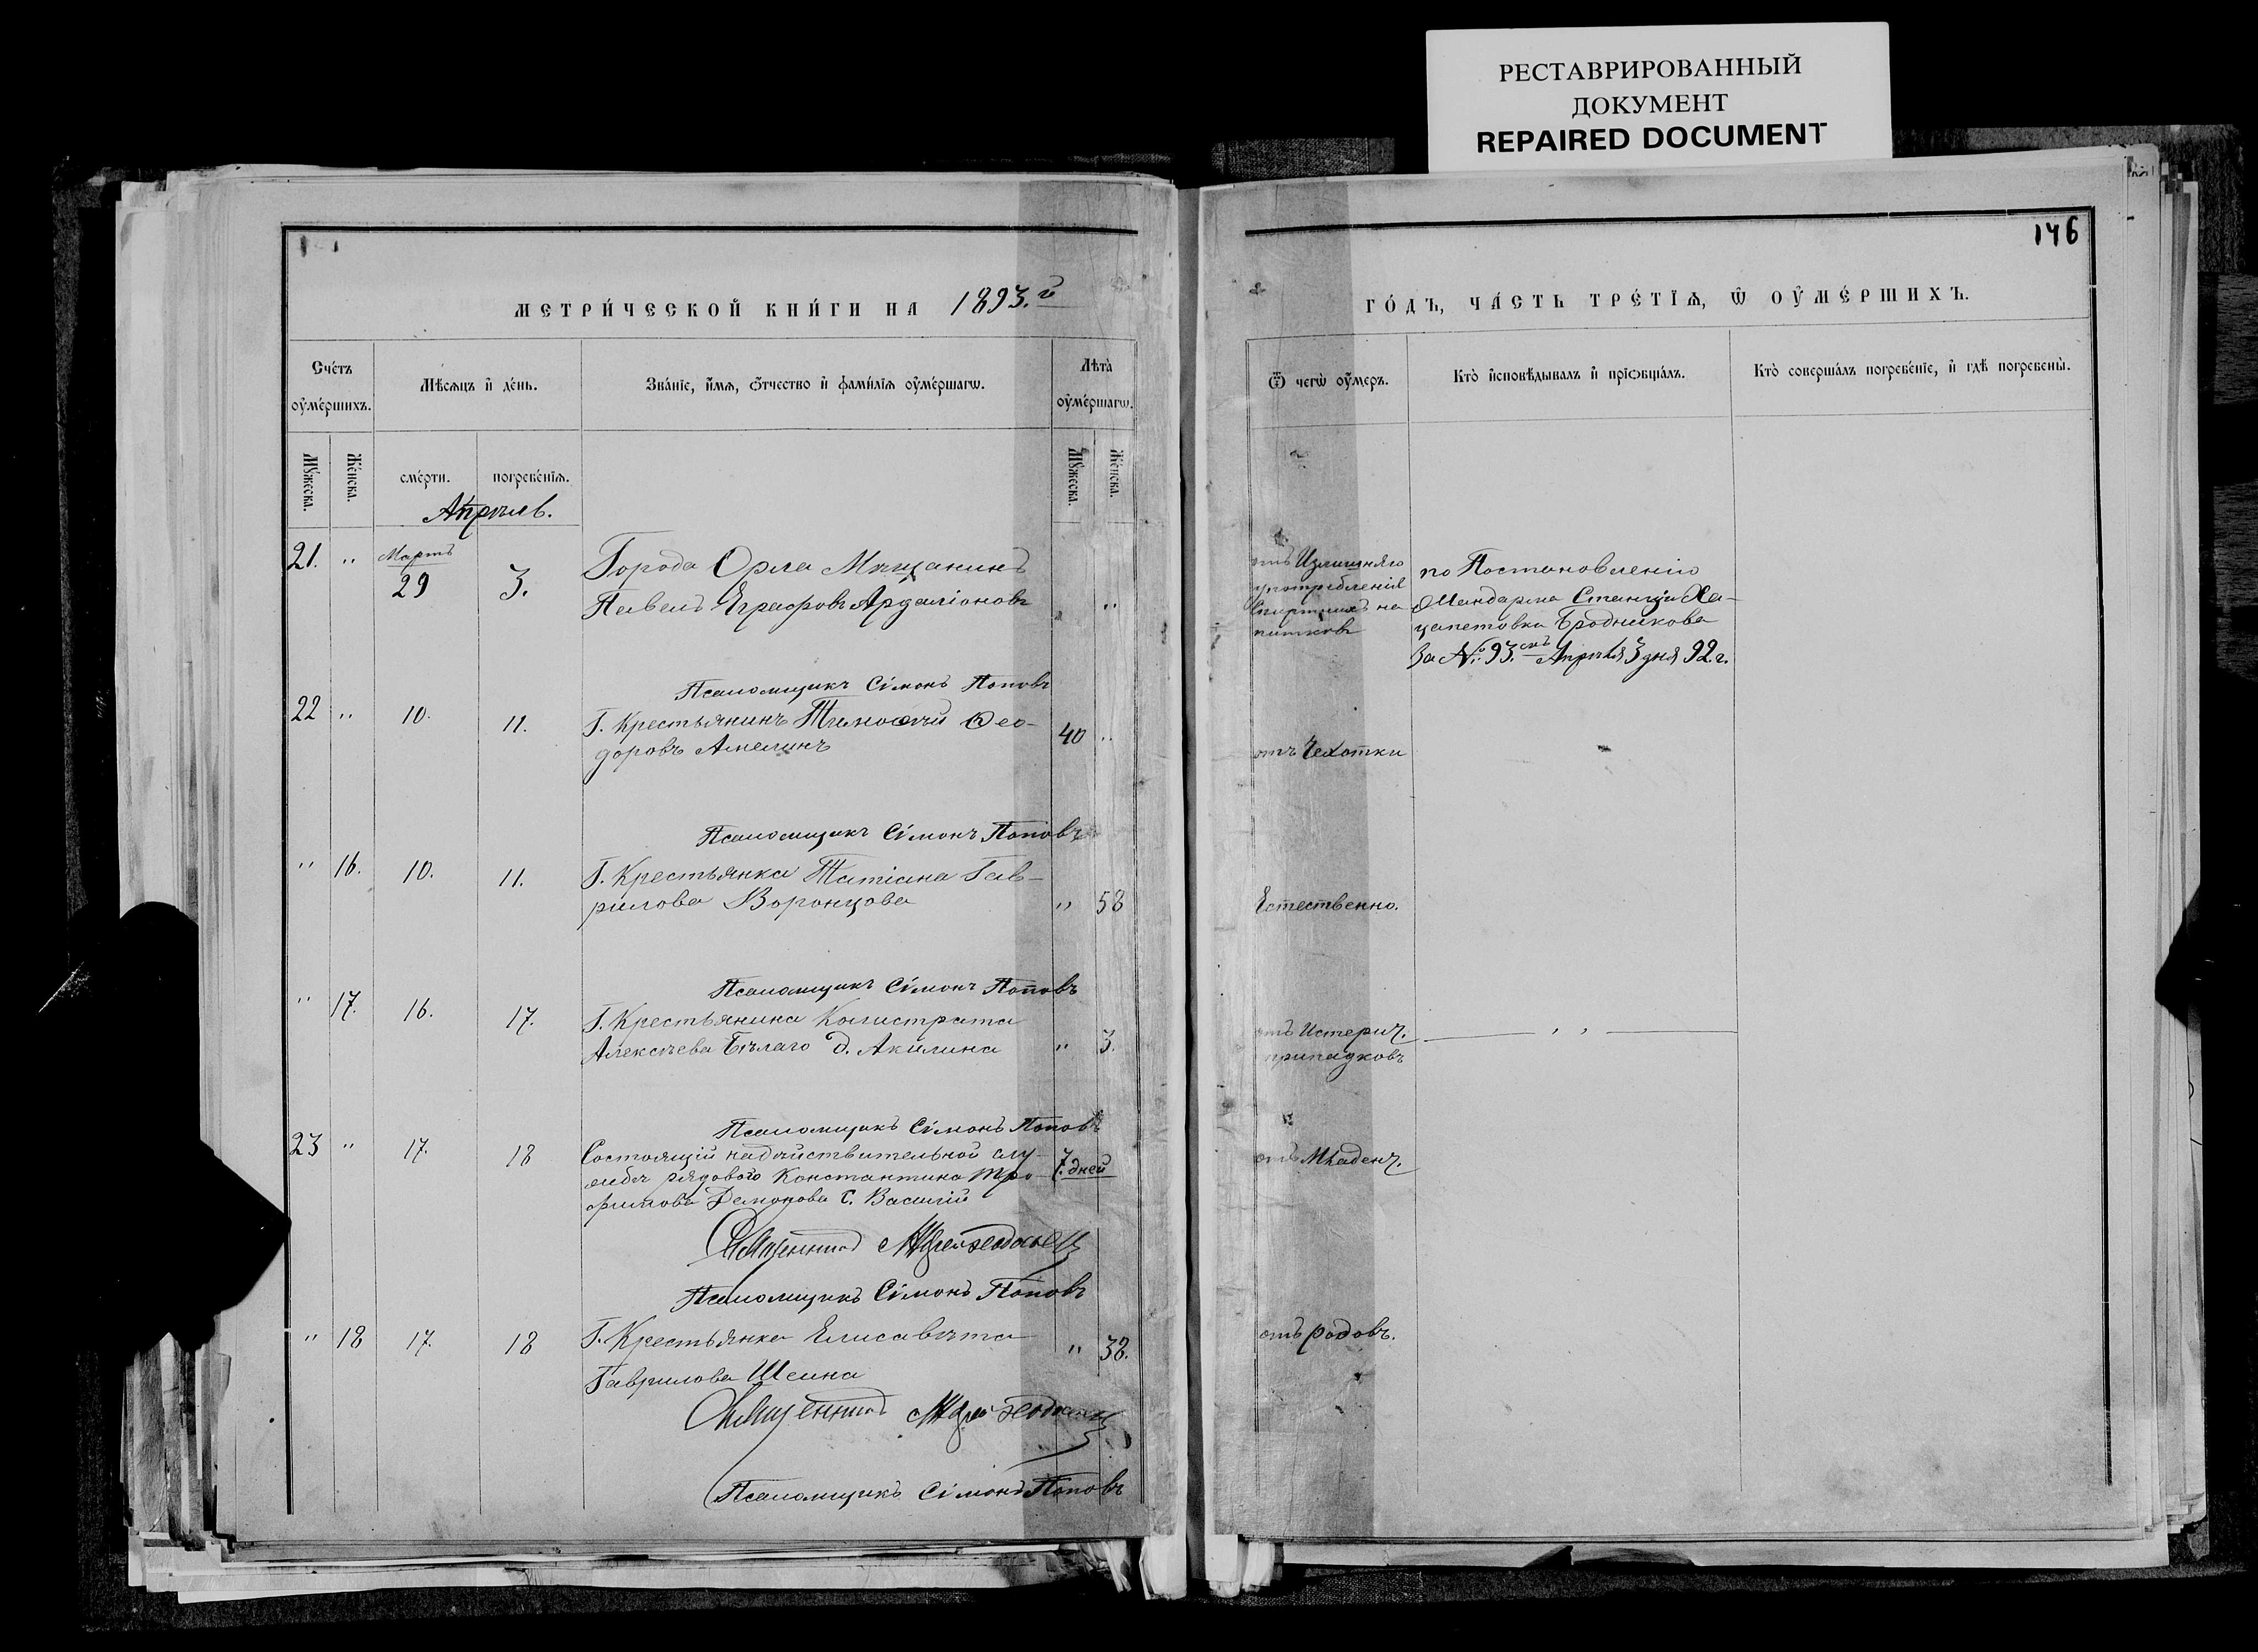 РЕСТАВРИРОВАННЫЙ
ДОКУМЕНТ
REPAIRED DOCUMENT
146
МЕТРИ́ЧЕСКОЙ КНИ́ГИ НА 1893.й
ГО́ДЪ, ЧА́СТЬ ТРЕ́ТІѦ, Ѡ ОУ҆МЕ́РШИХЪ.
Сче́тъ оу҆ме́ршихъ.
Мѣ́сѧцъ и҆ де́нь.
Зва́нїе, и҆́мѧ, ѻ҆́тчество и҆ фами́лїѧ оу҆ме́ршагѡ.
Лѣта̀ оу҆ме́ршагѡ.
Ѿ чегѡ̀ оу҆́меръ.
Кто̀ и҆сповѣ́дывалъ и҆ прїѡбща́лъ.
Кто̀ соверша́лъ погребе́нїе, и҆ гдѣ̀ погребены̀.
Мꙋ́жеска.
Же́нска.
сме́рти.
погребе́нїѧ.
Мꙋ́жеска.
Же́нска.
Апрѣль.
21. " Мартъ 29 3.
Города Орла Мѣщанинъ
Павелъ Еграфовъ Ардаліоновъ "
отъ Излишняго
употребленія
Спиртныхъ на
питковъ
по Постановленію
Жандарма Станціи Ха-
цапетовка Бродникова
За №. 93. Апрѣля 3 дня 92. г.
Псаломщикъ Сімонъ Поповъ
22 " 10. 11.
Г. Крестьянинъ Тимофѣй Ѳео-
доровъ Амелинъ 40 "
отъ Чехотки
Псаломщикъ Сімонъ Поповъ
" 16. 10. 11.
Г. Крестьянка Татіана Гав-
рилова Воронцова " 58
Естественно.
Псаломщикъ Сімонъ Поповъ
" 17. 16. 17.
Г. Крестьянина Калистрата
Алексѣева Бѣлаго д. Акилина " 3.
отъ Истерич.
припадковъ
" "
Псаломщикъ Сімонъ Поповъ
23 " 17. 18
Состоящій надѣйствительной слу-
жбѣ рядового Константина Тро-
фимова С. Василій 7. дней
отъ Младенч.
Священникъ
Псаломщикъ Сімонъ Поповъ
" 18 17. 18
Г. Крестьянка Елисавѣта
Гаврилова Шеина " 38.
отъ родовъ.
Священникъ
Псаломщикъ Сімонъ Поповъ